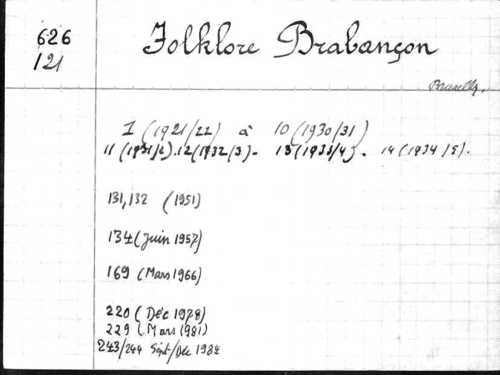 626
121
Folklore Brabançon
Bruxelles.
I (1921/22) à 10 (1930/31)
11 (1931/2). 12 (1932/3) - 13 (1933/4). 14 (1934/5).
131, 132 (1951)
134 (Juin 1957)
169 (Mars 1966)
220 (Déc 1978)
229 (Mars 1981)
243/244 Sept/Dec 1984